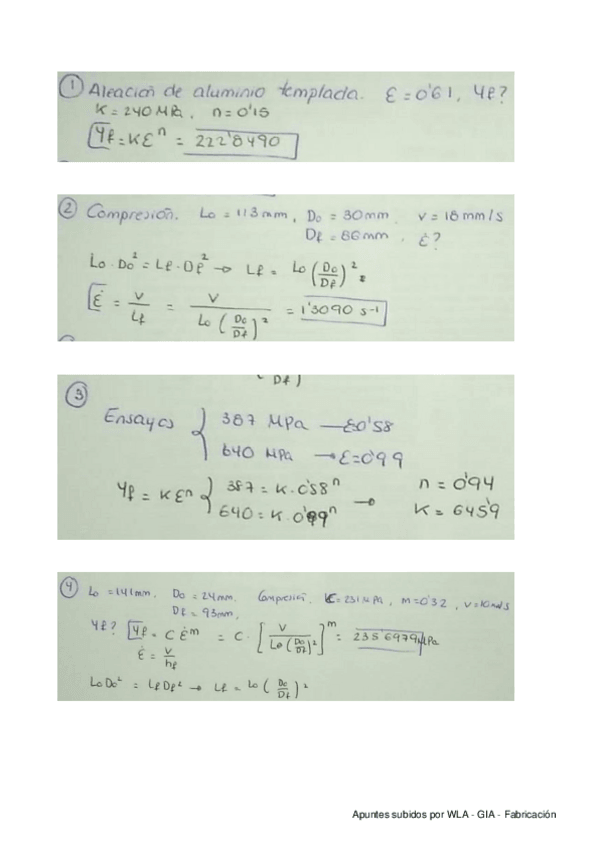 1 Aleación de aluminio templada. ε = 0'61, Yf?
K = 240 MPa, n = 0'15
Yf = Kε^n = 222'8490
2 Compresión. Lo = 113 mm, Do = 30mm, v = 18 mm/s
Df = 86mm, ε̇?
Lo·Do² = Lf·Df² → Lf = Lo(Do/Df)²
ε̇ = v/Lf = v/(Lo(Do/Df)²) = 1'3090 s⁻¹
Df)
3
Ensayos { 387 MPa → ε=0'58
640 MPa → ε=0'99
Yf = Kε^n { 387 = K·0'58^n → n = 0'94
640 = K·0'99^n K = 645'9
4 Lo = 141mm. Do = 24mm. Compresión. C = 231 MPa, m = 0'32, v = 10 mm/s
Df = 93mm.
Yf? Yf = C ε̇^m = C·[v/(Lo(Do/Df)²)]^m = 235'6979 MPa
ε̇ = v/hf
LoDo² = LfDf² → Lf = Lo(Do/Df)²
Apuntes subidos por WLA - GIA - Fabricación